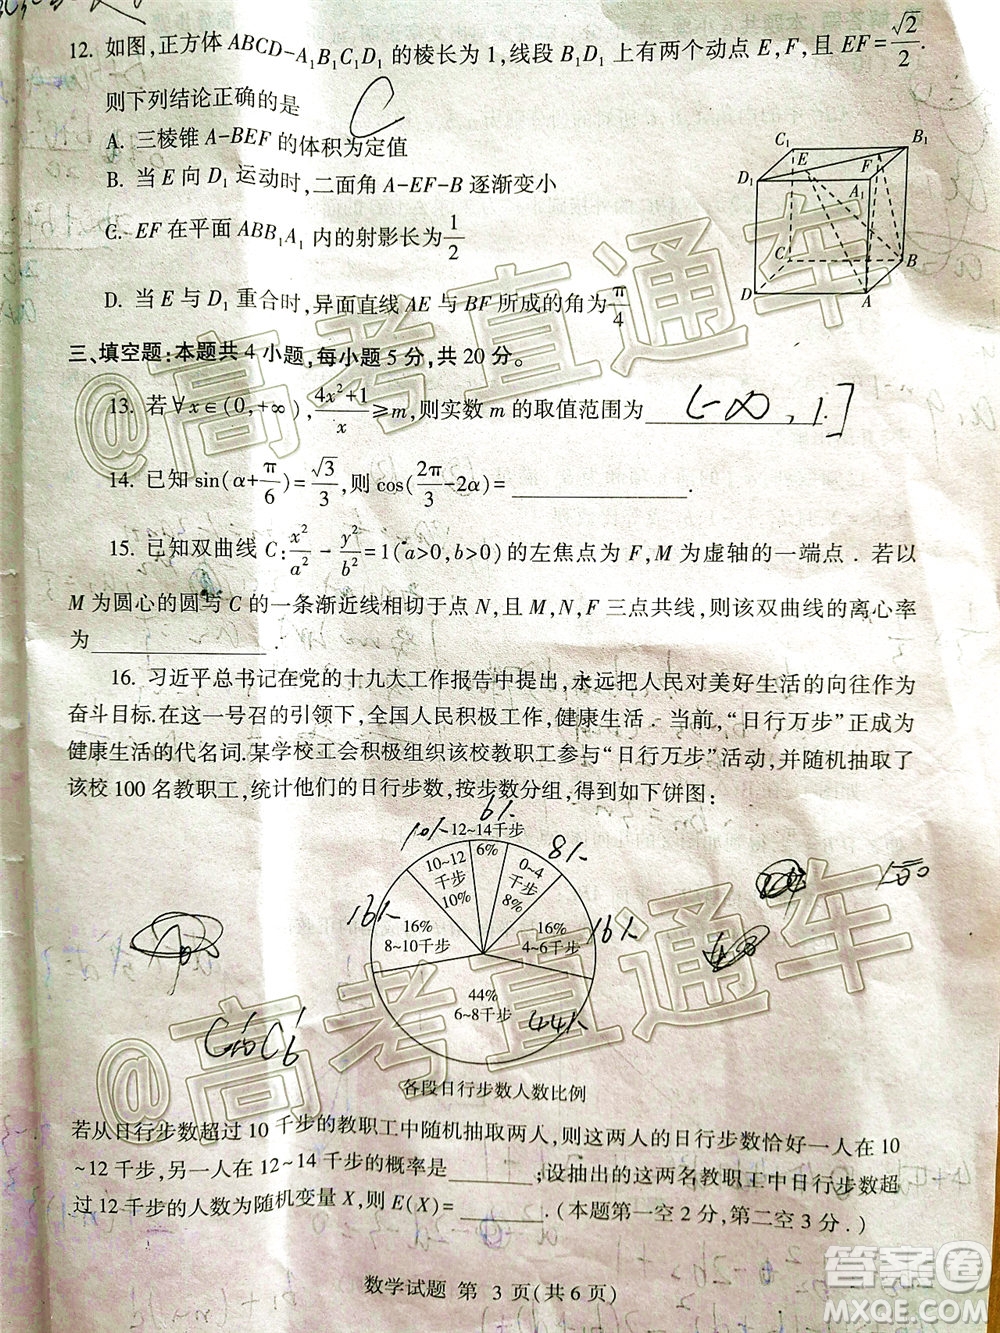 12. 如图,正方体 ABCD-A₁B₁C₁D₁ 的棱长为 1,线段 B₁D₁ 上有两个动点 E,F,且 EF=√2/2.
则下列结论正确的是
C
A. 三棱锥 A-BEF 的体积为定值
B. 当 E 向 D₁ 运动时,二面角 A-EF-B 逐渐变小
C. EF 在平面 ABB₁A₁ 内的射影长为1/2
D. 当 E 与 D₁ 重合时,异面直线 AE 与 BF 所成的角为π/4
C₁ B₁ E F D₁ A₁ C B D A
三、填空题:本题共 4 小题,每小题 5 分,共 20 分。
13. 若 ∀x∈(0,+∞),(4x²+1)/x≥m,则实数 m 的取值范围为 (-∞, 1] .
14. 已知 sin(α+π/6)=√3/3,则 cos(2π/3-2α)= .
15. 已知双曲线 C:x²/a²-y²/b²=1(a>0,b>0)的左焦点为 F,M 为虚轴的一端点．若以
M 为圆心的圆与 C 的一条渐近线相切于点 N,且 M,N,F 三点共线,则该双曲线的离心率
为 .
16. 习近平总书记在党的十九大工作报告中提出,永远把人民对美好生活的向往作为
奋斗目标.在这一号召的引领下,全国人民积极工作,健康生活．当前,“日行万步”正成为
健康生活的代名词.某学校工会积极组织该校教职工参与“日行万步”活动,并随机抽取了
该校 100 名教职工,统计他们的日行步数,按步数分组,得到如下饼图:
6%
10% 12~14千步 8%
10~12千步 10%
6%
0~4千步 8%
16% 16% 8~10千步
16% 4~6千步 16%
44% 6~8千步 44%
各段日行步数人数比例
若从日行步数超过 10 千步的教职工中随机抽取两人,则这两人的日行步数恰好一人在 10
~12 千步,另一人在 12~14 千步的概率是 ;设抽出的这两名教职工中日行步数超
过 12 千步的人数为随机变量 X,则 E(X)= .(本题第一空 2 分,第二空 3 分.)
数学试题 第 3 页(共 6 页)
@高考直通车
@高考直通车
答案圈
MXQE.COM